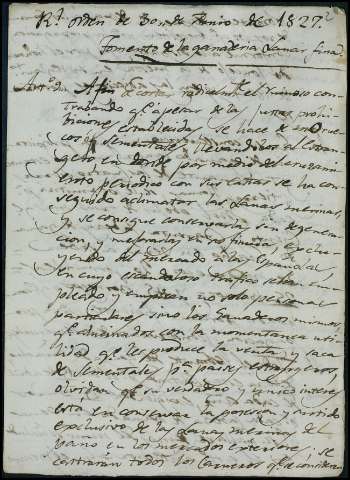 Rl. orden de 30, de Junio de 1827.
Fomento de la ganaderia Lanar fina
Afin cortar radicalm.te el ruinoso con-
trabando qe. apesar de las justas prohi-
biciones establecidas, se hace de morue-
cos y sementales, llevandolos al Estran-
gero en donde por medio del cruzam-
iento periodico con sus castas se ha con-
seguido aclimatar las Lanas merinas,
y se consigue conservarlas sin degenera-
cion, y mejorarlas en su finura, exclu-
yendo del mercado a las Españolas,
en cuyo escandaloso trafico se han em-
pleado y emplean no solo personas
particulares, sino los Ganaderos mismos,
qe. alucinados con la momentanea uti-
lidad qe. les produce la venta y saca
de sementales pa. paises estrangeros,
olvidan qe. su verdadero y unico interes
está en conservar la posesion y surtido
exclusivo de las lanas merinas del
paño en los mercados exteriores; se
castrarán todos los Carneros qe. se consideren